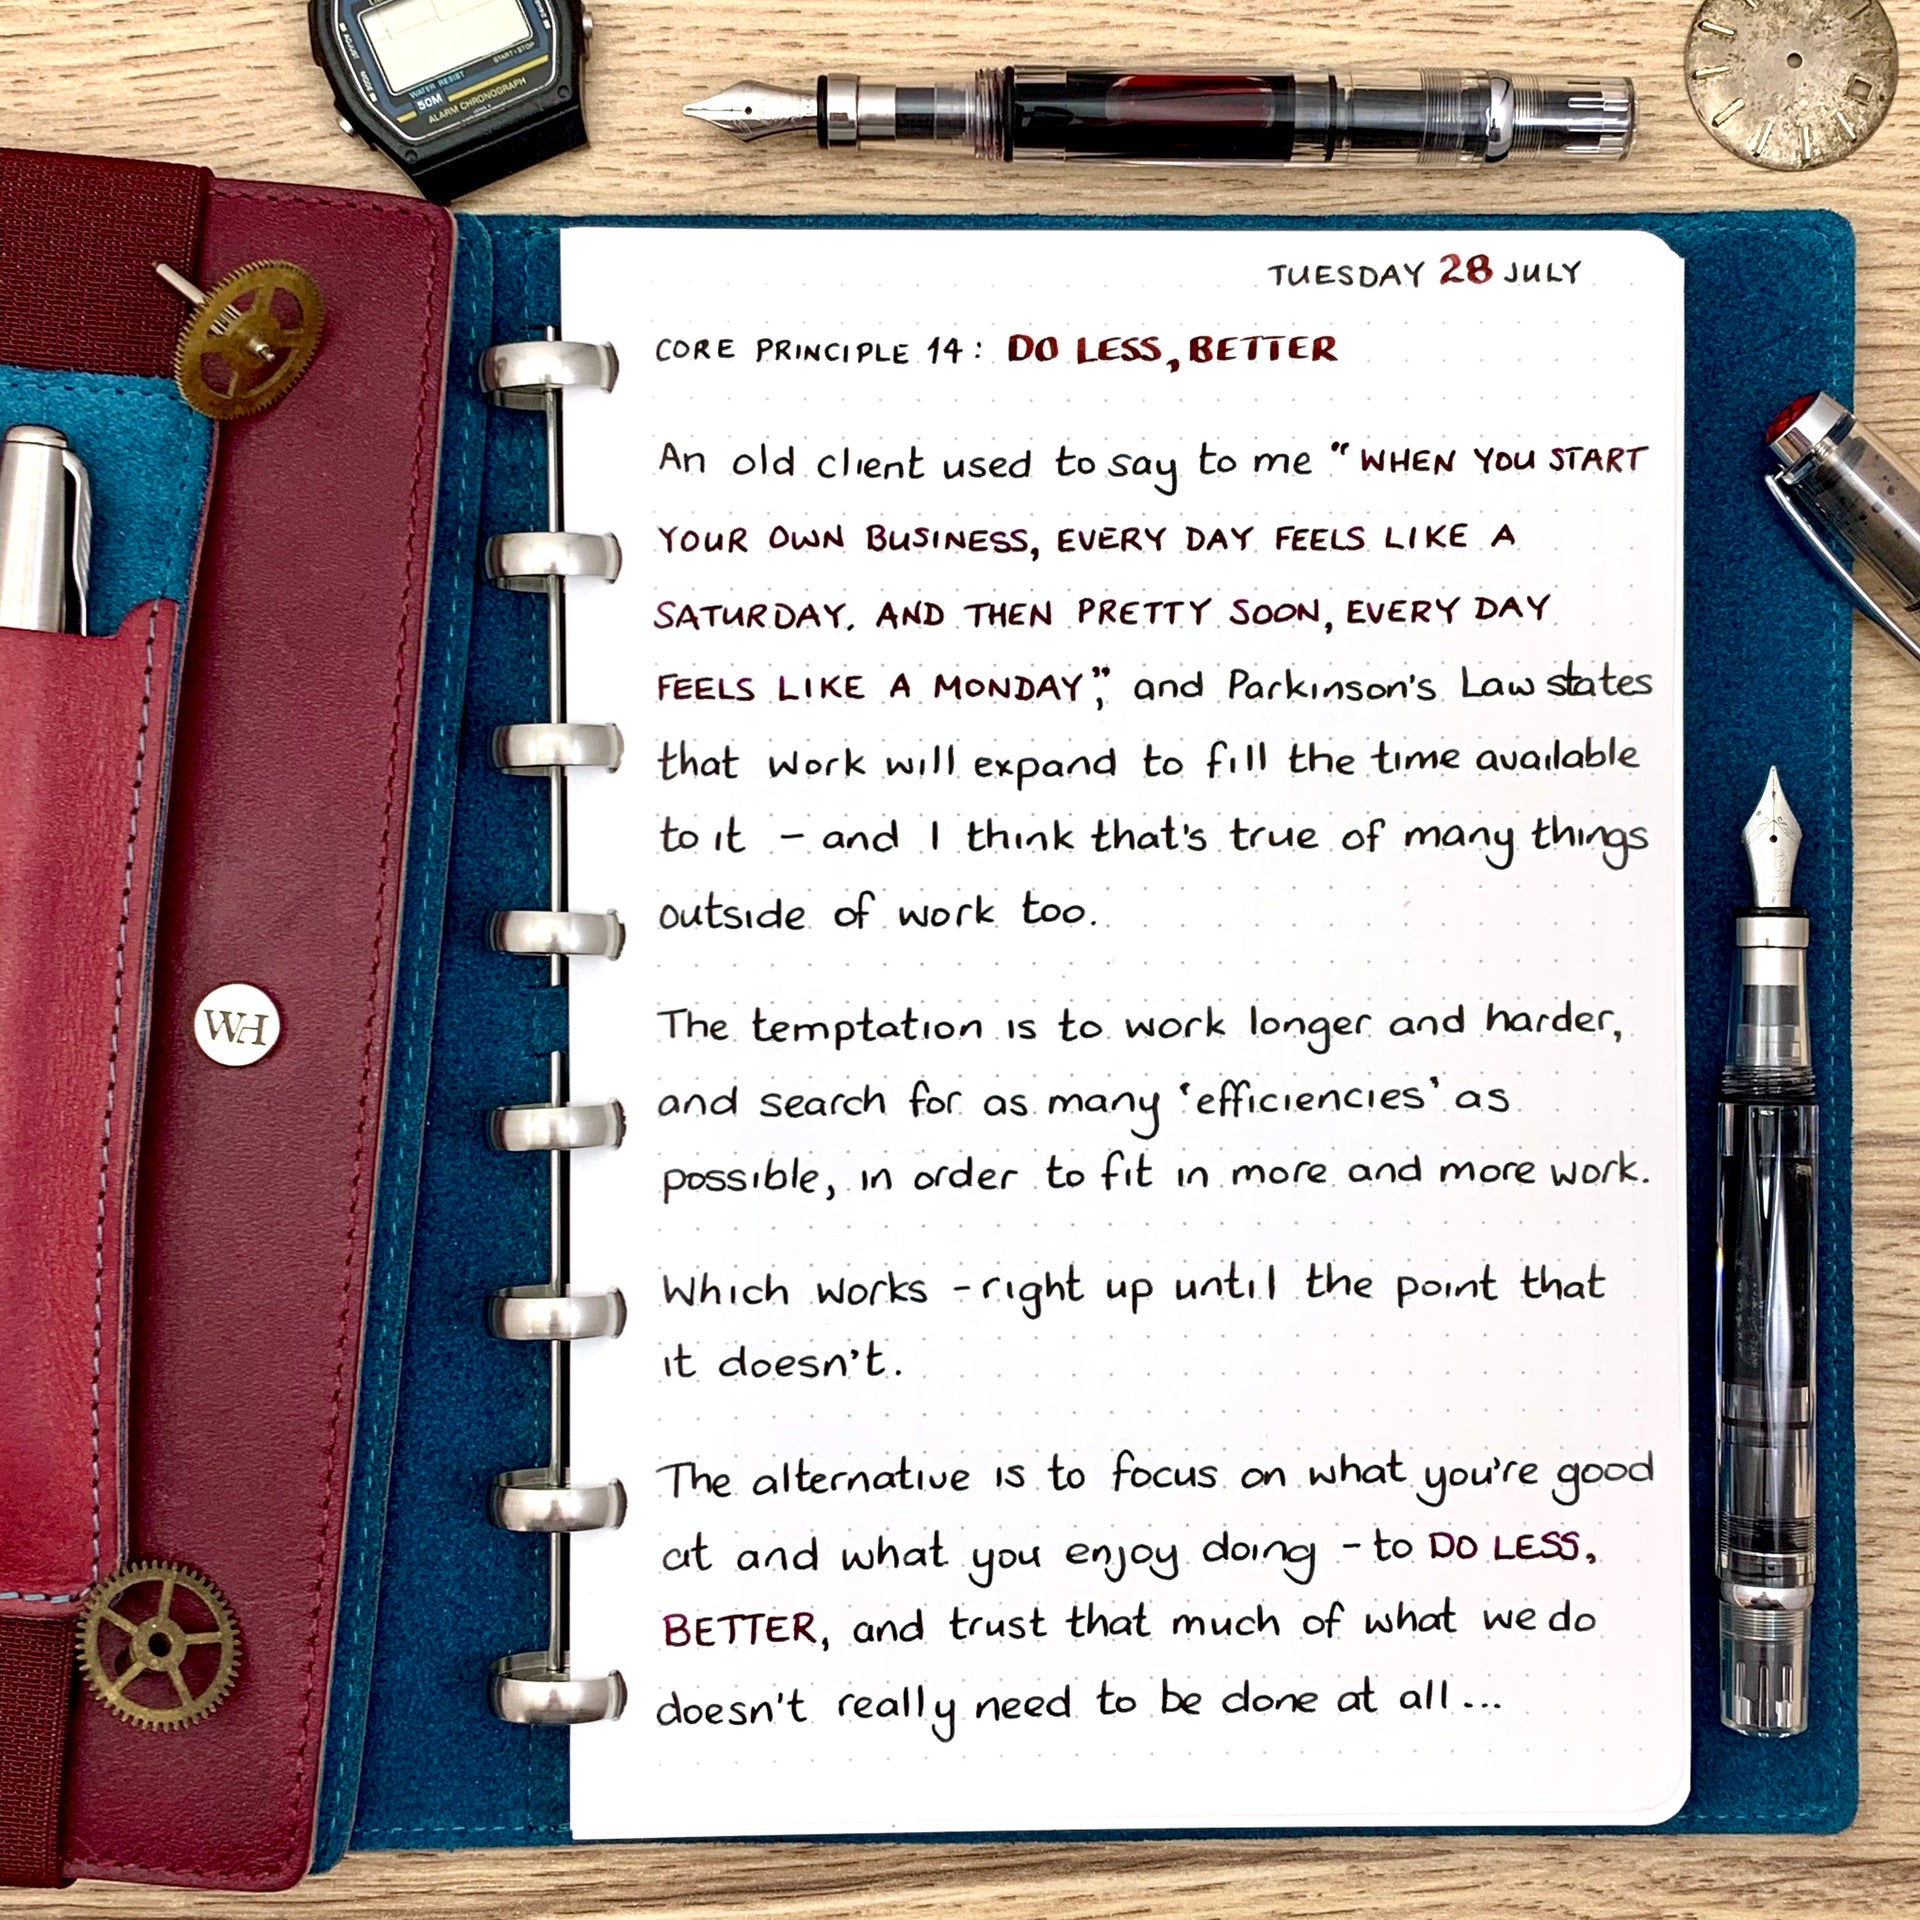 ADJUST
MODE
WATER RESIST
50M
START·STOP
ALARM CHRONOGRAPH
WH
TUESDAY 28 JULY
CORE PRINCIPLE 14: DO LESS, BETTER
An old client used to say to me “WHEN YOU START
YOUR OWN BUSINESS, EVERY DAY FEELS LIKE A
SATURDAY. AND THEN PRETTY SOON, EVERY DAY
FEELS LIKE A MONDAY”, and Parkinson's Law states
that work will expand to fill the time available
to it – and I think that's true of many things
outside of work too.
The temptation is to work longer and harder,
and search for as many ‘efficiencies’ as
possible, in order to fit in more and more work.
Which works – right up until the point that
it doesn't.
The alternative is to focus on what you're good
at and what you enjoy doing – to DO LESS,
BETTER, and trust that much of what we do
doesn't really need to be done at all...